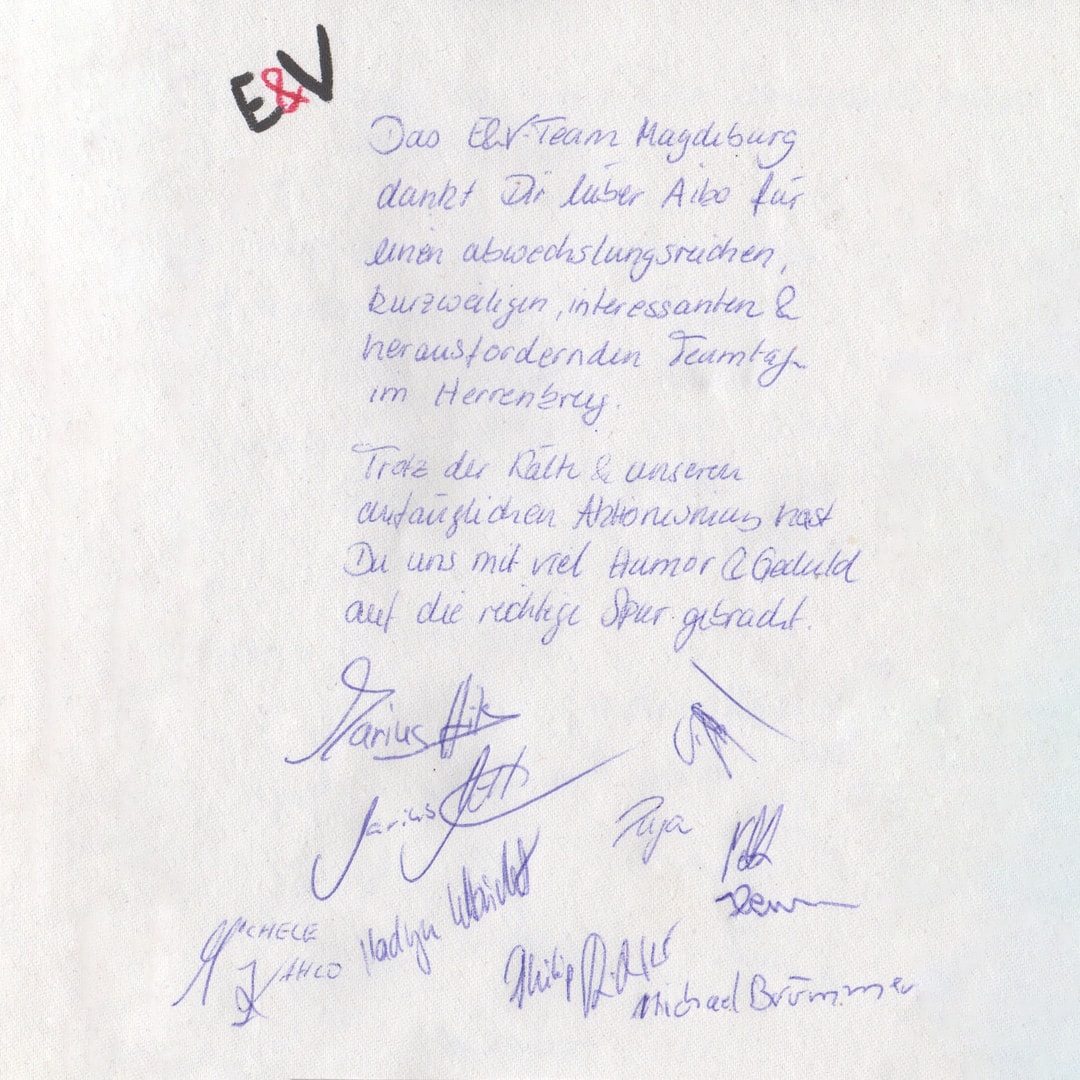 E&V
Das E&V-Team Magdeburg
dankt Dir lieber Aibo für
einen abwechslungsreichen,
kurzweiligen, interessanten &
herausfordernden Teamtag
im Herrenkrug.
Trotz der Kälte & unseren
anfänglichen Aktionismus hast
Du uns mit viel Humor & Geduld
auf die richtige Spur gebracht.
Marius
Darius
Puja
MICHELE
Madlyn
Philip Richter
Michael Brümmer